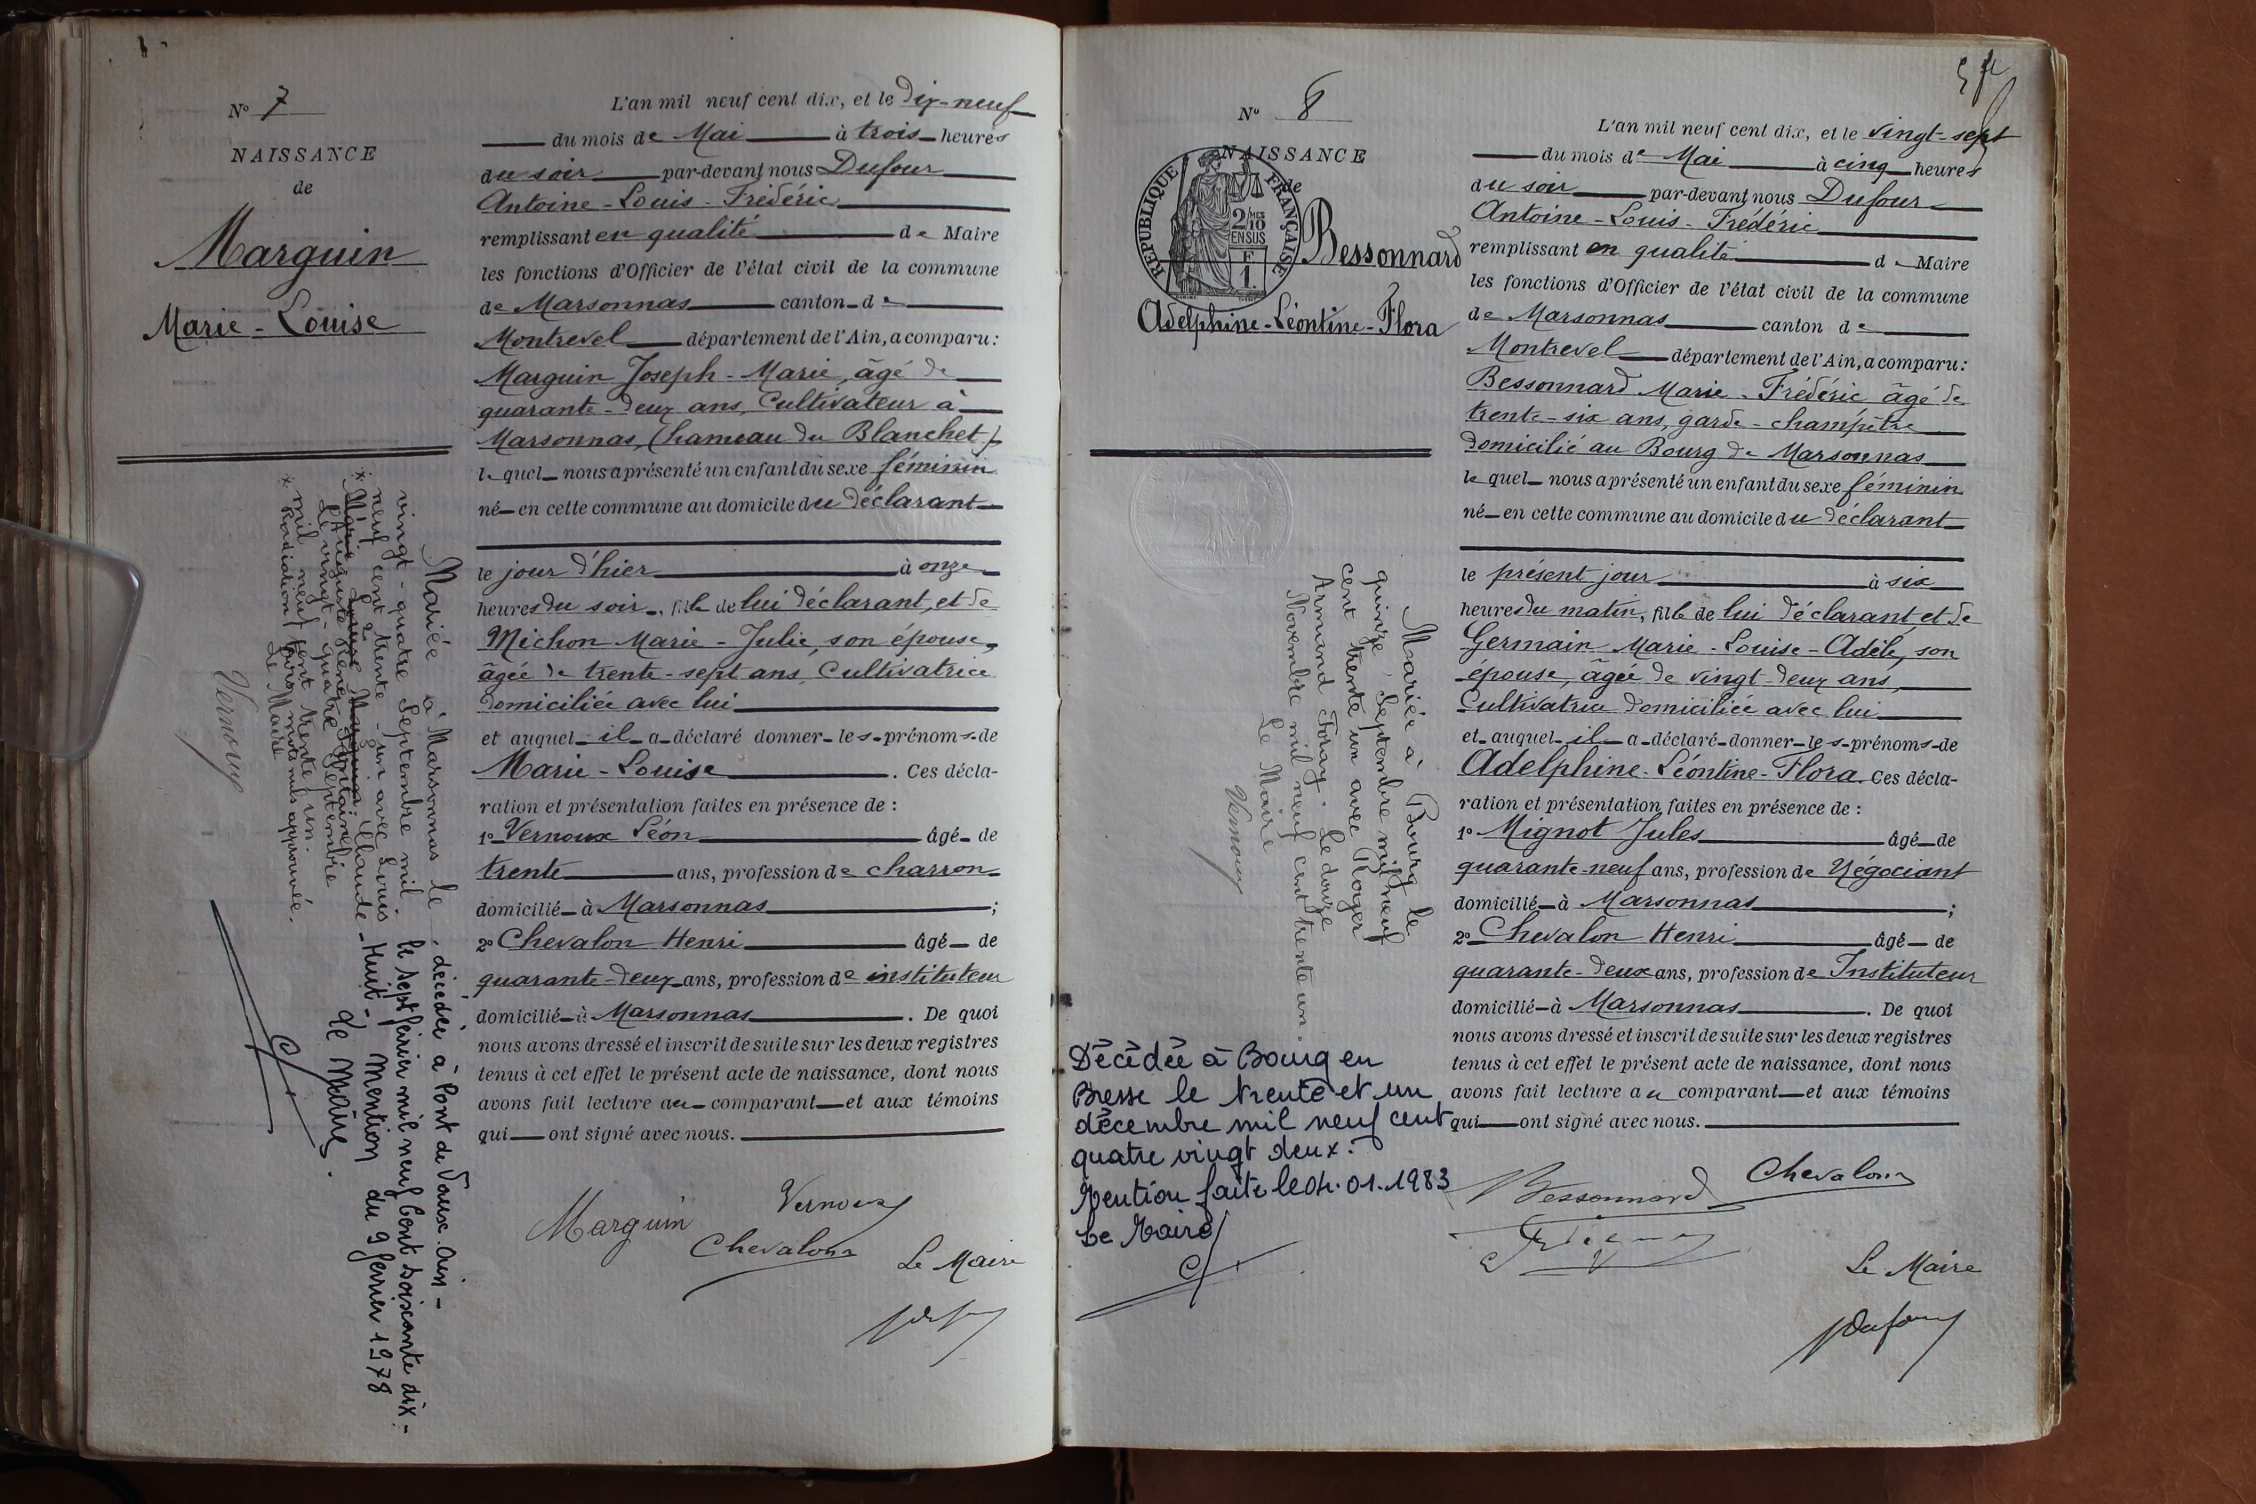 N° 7
NAISSANCE
de
Marguin
Marie-Louise
L'an mil neuf cent dix, et le dix-neuf
du mois de Mai à trois heures
du soir par-devant nous Dufour
Antoine-Louis-Frédéric
remplissant en qualité de Maire
les fonctions d'Officier de l'état civil de la commune
de Marsonnas canton de
Montrevel département de l'Ain, a comparu:
Marguin Joseph-Marie, âgé de
quarante-deux ans, Cultivateur à
Marsonnas, (hameau du Blanchet)
lequel nous a présenté un enfant du sexe féminin
né en cette commune au domicile du déclarant
le jour d'hier à onze
heures du soir, fille de lui déclarant, et de
Michon Marie-Julie, son épouse,
âgée de trente-sept ans, Cultivatrice
domiciliée avec lui
et auquel il a déclaré donner les prénoms de
Marie-Louise. Ces décla-
ration et présentation faites en présence de :
1° Vernoux Léon âgé de
trente ans, profession de charron
domicilié à Marsonnas ;
2° Chevalon Henri âgé de
quarante-deux ans, profession de instituteur
domicilié à Marsonnas. De quoi
nous avons dressé et inscrit de suite sur les deux registres
tenus à cet effet le présent acte de naissance, dont nous
avons fait lecture au comparant et aux témoins
qui ont signé avec nous.
Marguin
Vernoux
Chevalon
Le Maire
Mariée à Marsonnas le
vingt-quatre Septembre mil
neuf cent trente-un avec Louis
* Marie Louise Marguin Claude
Auguste René
Le vingt-quatre Septembre
mil neuf cent trente un.
Le Maire
* Radiation mots nuls approuvée.
Vernoux
décédée à Pont de Vaux. Ain -
le sept février mil neuf cent soixante dix-
Huit - Mention du 9 février 1978
Le Maire.
N° 8
NAISSANCE
de
RÉPUBLIQUE FRANÇAISE
2/10 MES
EN SUS
1 F.
Bessonnard
Adelphine-Léontine-Flora
L'an mil neuf cent dix, et le vingt-sept
du mois de Mai à cinq heures
du soir par-devant nous Dufour
Antoine-Louis-Frédéric
remplissant en qualité de Maire
les fonctions d'Officier de l'état civil de la commune
de Marsonnas canton de
Montrevel département de l'Ain, a comparu:
Bessonnard Marie-Frédéric âgé de
trente-six ans, garde-champêtre
domicilié au Bourg de Marsonnas
lequel nous a présenté un enfant du sexe féminin
né en cette commune au domicile du déclarant
le présent jour à six
heures du matin, fille de lui déclarant et de
Germain Marie-Louise-Adèle, son
épouse, âgée de vingt-deux ans,
Cultivatrice domiciliée avec lui
et auquel il a déclaré donner les prénoms de
Adelphine-Léontine-Flora. Ces décla-
ration et présentation faites en présence de :
1° Mignot Jules âgé de
quarante-neuf ans, profession de Négociant
domicilié à Marsonnas ;
2° Chevalon Henri âgé de
quarante-deux ans, profession de Instituteur
domicilié à Marsonnas. De quoi
nous avons dressé et inscrit de suite sur les deux registres
tenus à cet effet le présent acte de naissance, dont nous
avons fait lecture au comparant et aux témoins
qui ont signé avec nous.
Bessonnard
Chevalon
Le Maire
Dufour
Mariée à Bourg le
quinze Septembre mil neuf
cent trente un avec Roger
Armand Foray. Le douze
Novembre mil neuf cent trente un.
Le Maire
Vernoux
Décédée à Bourg en
Bresse le trente et un
décembre mil neuf cent
quatre vingt deux.
Mention faite le 04.01.1983
Le Maire